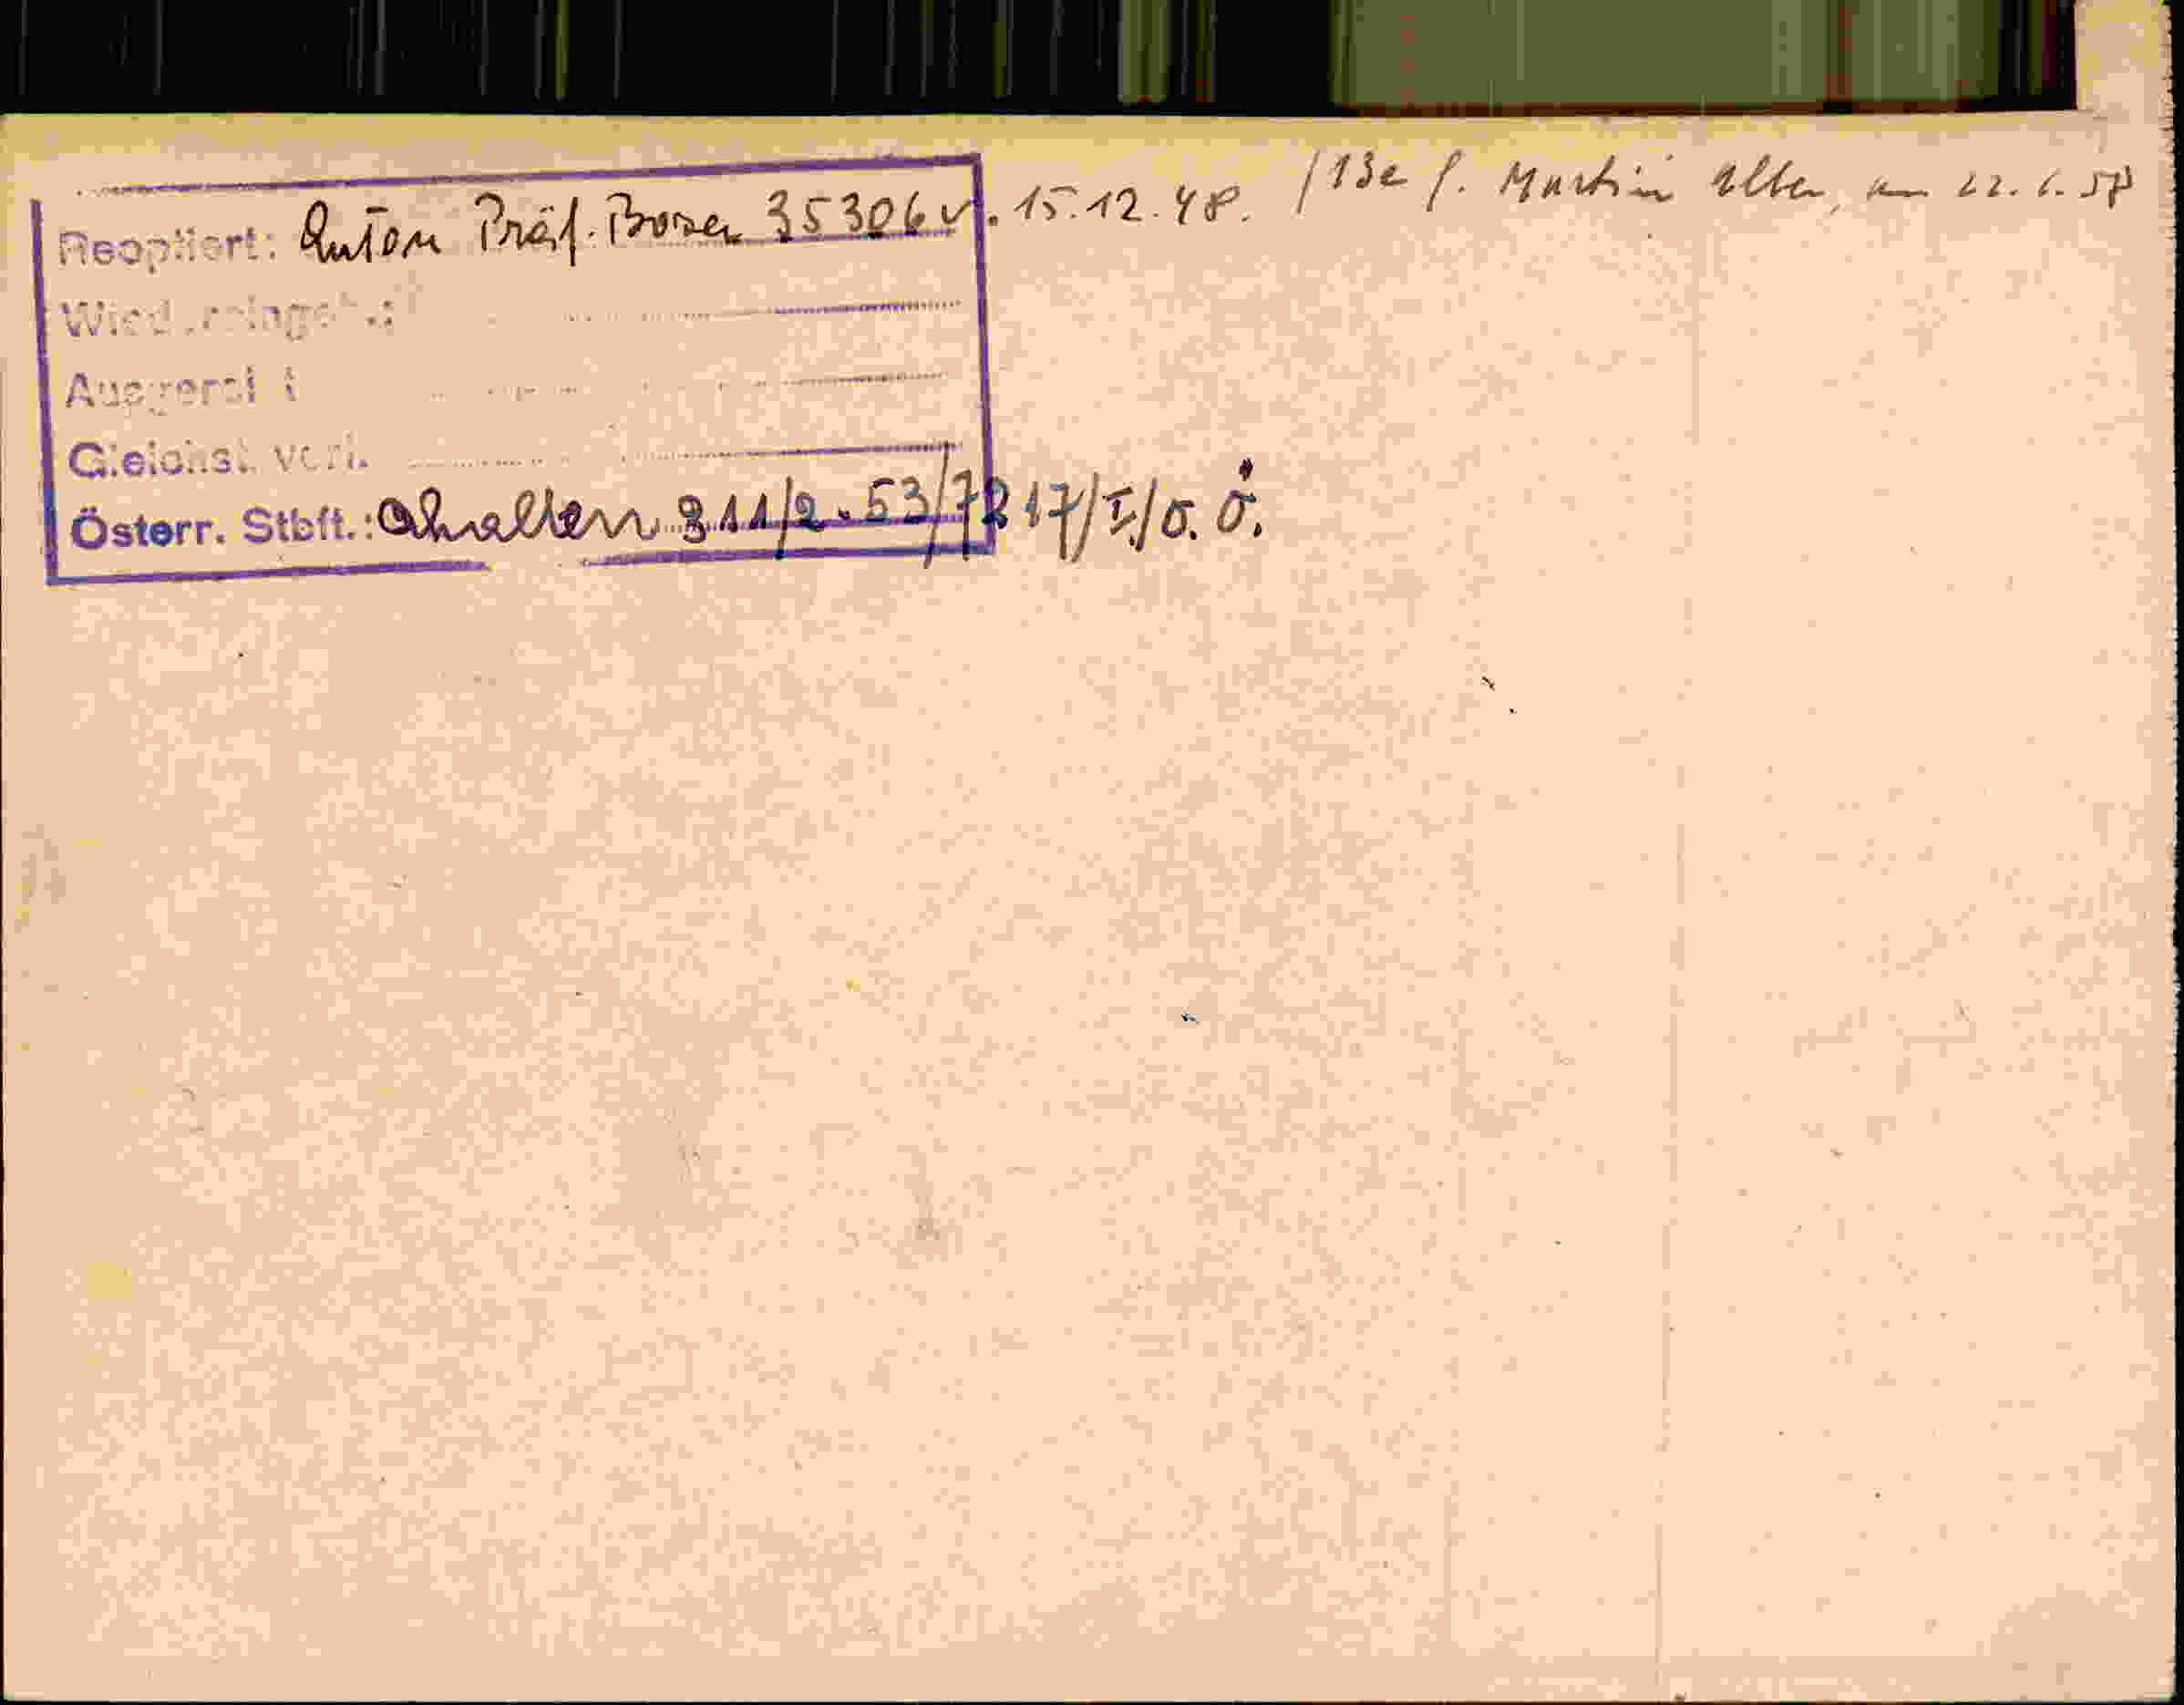 Reoptiert: Anton Präf. Bozen 35306 v. 15.12.48. /13e f. Martin Alber, am 22.6.58
Wiedereingeb.:
Ausgereist:
Gleichst. verl.
Österr. Stbft.: Erhalten 311/2-53/7217/I/O.Ö.